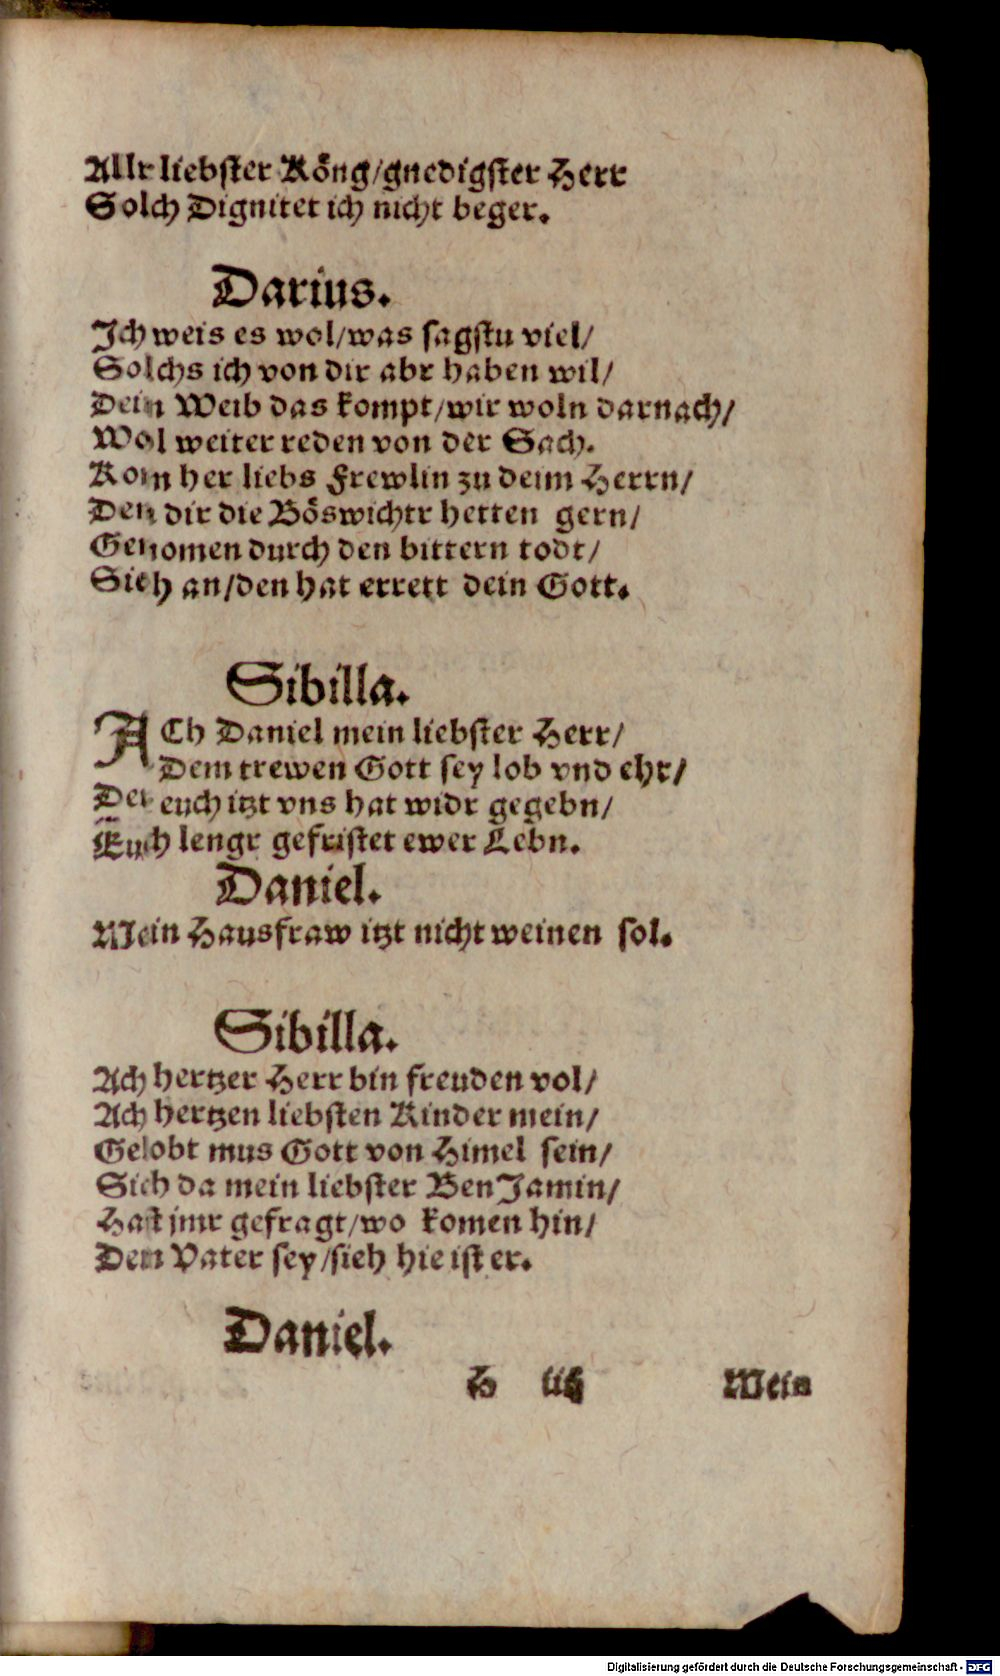 Allr liebster Köng/gnedigster Herr
Solch Dignitet ich nicht beger.
Darius.
Ich weis es wol/was sagstu viel/
Solchs ich von dir abr haben wil/
Dein Weib das kompt/wir woln darnach/
Wol weiter reden von der Sach.
Kom her liebs Frewlin zu deim Herrn/
Den dir die Böswichtr hetten gern/
Genomen durch den bittern todt/
Sieh an/den hat errett dein Gott.
Sibilla.
ACh Daniel mein liebster Herr/
Dem trewen Gott sey lob vnd ehr/
Der euch itzt vns hat widr gegebn/
Euch lengr gefristet ewer Lebn.
Daniel.
Mein Hausfraw itzt nicht weinen sol.
Sibilla.
Ach hertzer Herr bin freuden vol/
Ach hertzen liebsten Kinder mein/
Gelobt mus Gott von Himel sein/
Sieh da mein liebster BenJamin/
Hast jmr gefragt/wo komen hin/
Dein Vater sey/sieh hie ist er.
Daniel.
H iij Mein
Digitalisierung gefördert durch die Deutsche Forschungsgemeinschaft - DFG